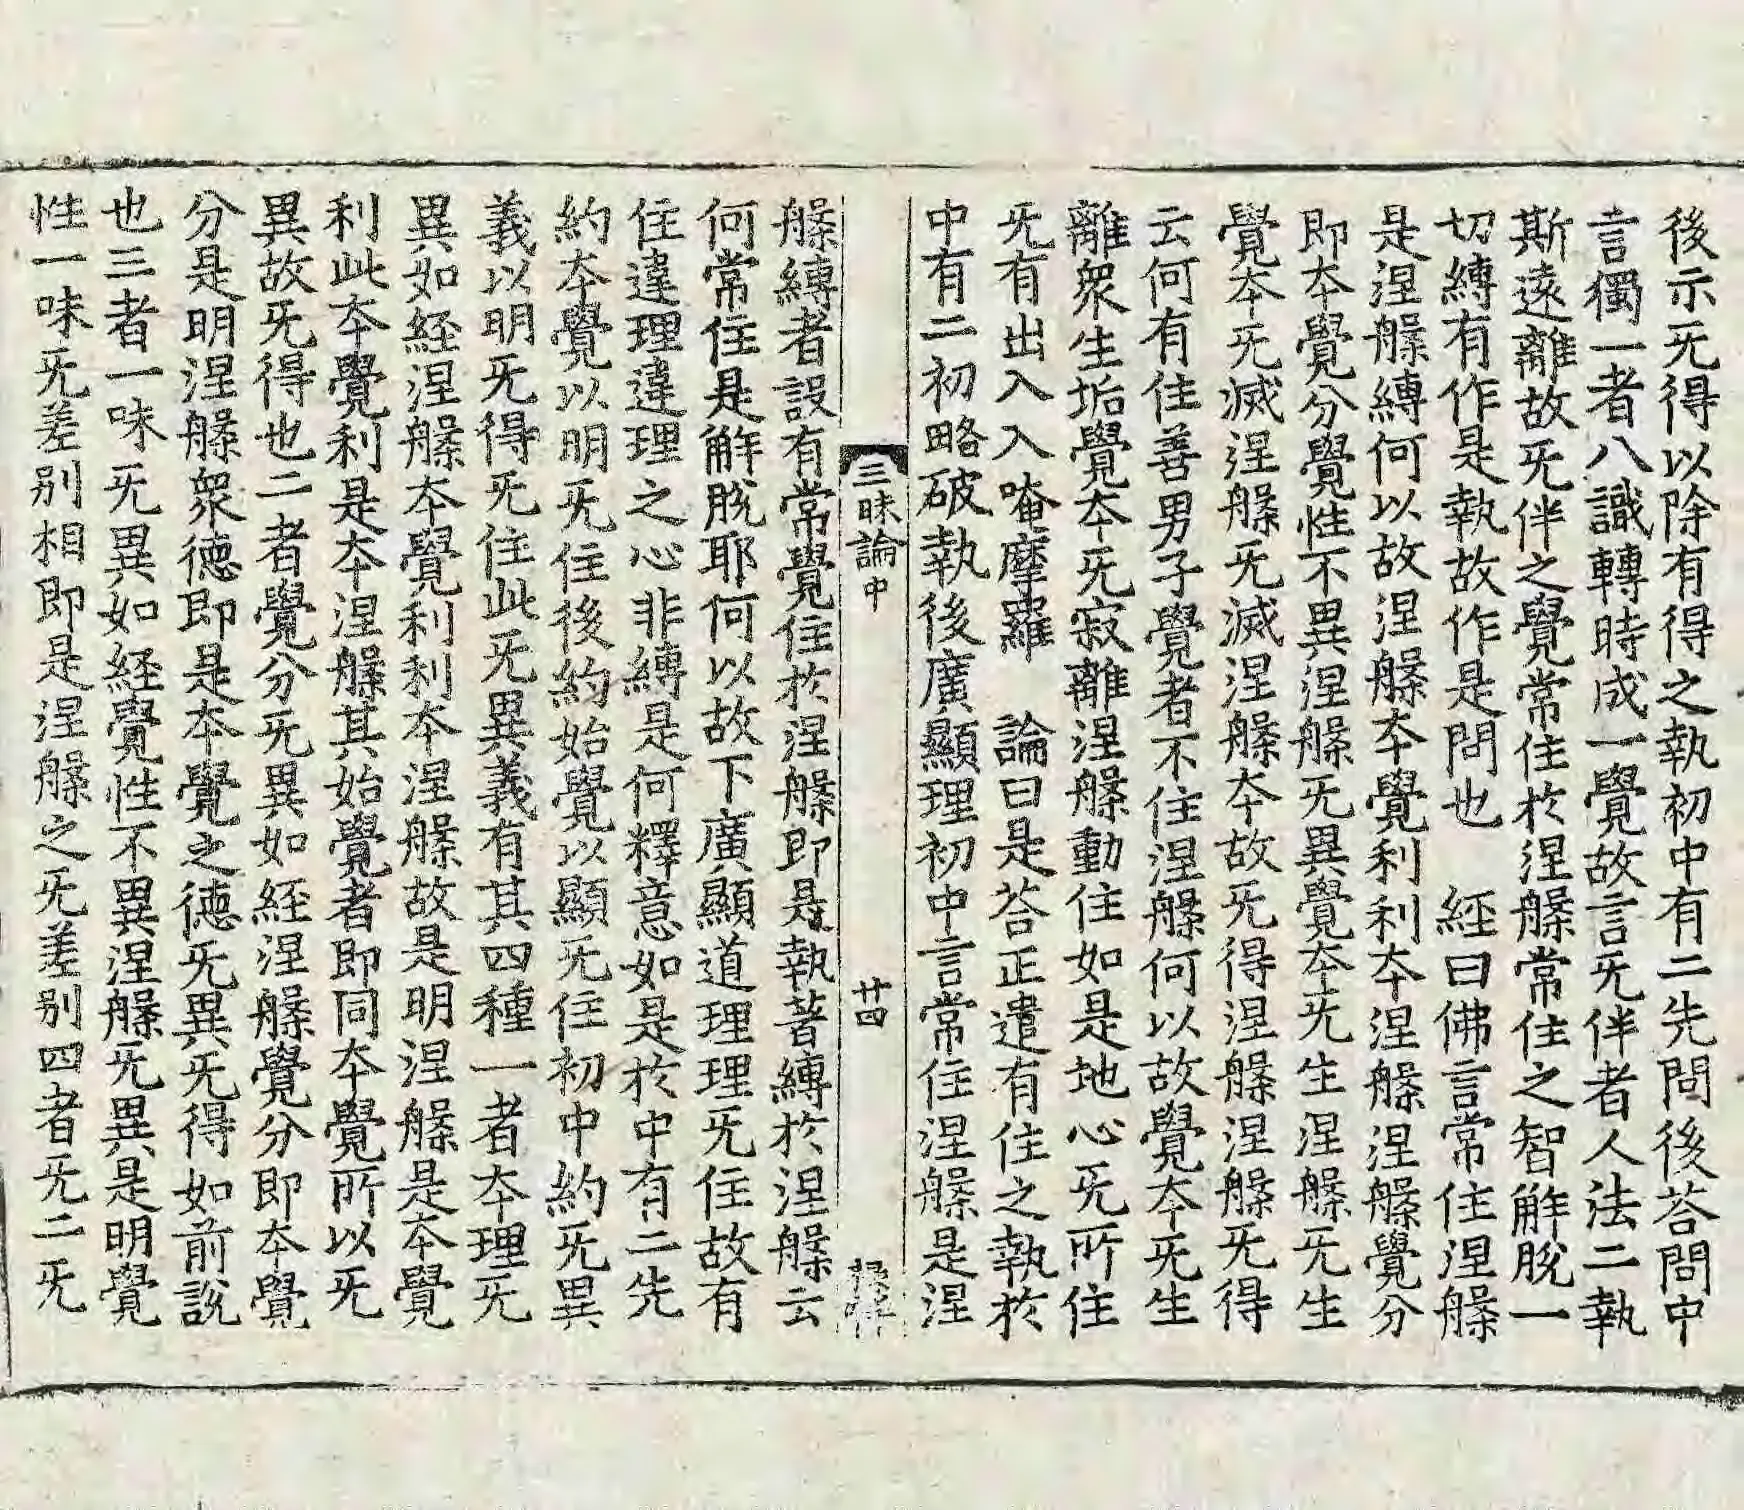 後示旡得以除有得之執初中有二先問後荅問中
言獨一者八識轉時成一覺故言旡伴者人法二執
斯遠離故旡伴之覺常住於涅槃常住之智解脫一
切縛有作是執故作是問也 経曰佛言常住涅槃
是涅槃縛何以故涅槃夲覺利利夲涅槃涅槃覺分
即夲覺分覺性不異涅槃旡異覺夲旡生涅槃旡生
覺夲旡滅涅槃旡滅涅槃夲故旡得涅槃涅槃旡得
云何有住善男子覺者不住涅槃何以故覺夲旡生
離衆生垢覺夲旡寂離涅槃動住如是地心旡所住
旡有出入入唵摩羅 論曰是荅正遣有住之執於
中有二初略破執後廣顯理初中言常住涅槃是涅
三昧論中 廿四
槃縛者設有常覺住於涅槃即是執著縛於涅槃云
何常住是解脫耶何以故下廣顯道理理旡住故有
住違理違理之心非縛是何釋意如是於中有二先
約夲覺以明旡住後約始覺以顯旡住初中約旡異
義以明旡得旡住此旡異義有其四種一者夲理旡
異如経涅槃夲覺利利夲涅槃故是明涅槃是夲覺
利此夲覺利是夲涅槃其始覺者即同夲覺所以旡
異故旡得也二者覺分旡異如経涅槃覺分即夲覺
分是明涅槃衆德即是夲覺之德旡異旡得如前說
也三者一味旡異如経覺性不異涅槃旡異是明覺
性一味旡差别相即是涅槃之旡差别四者旡二旡